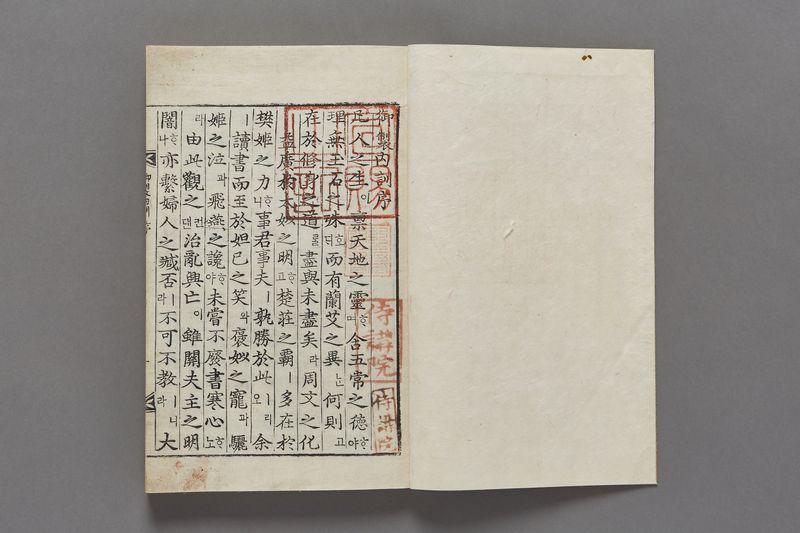 御製內訓序
凡人之生이 禀天地之靈ᄒᆞ며 含五常之德ᄒᆞ야
理無玉石之殊호ᄃᆡ 而有蘭艾之異ᄂᆞᆫ 何則고
在於修身之道ᄅᆞᆯ 盡與未盡矣라 周文之化
ㅣ 益廣於太姒之明ᄒᆞ고 楚莊之霸ㅣ 多在於
樊姬之力ᄒᆞ니 事君事夫ㅣ 孰勝於此ㅣ리오 余
ㅣ 讀書而至於妲己之笑와 褒姒之寵과 驪
姬之泣과 飛燕之讒ᄒᆞ야 未嘗不廢書寒心ᄒᆞ노
라 由此觀之컨댄 治亂興亡이 雖關夫主之明
闇ᄒᆞ나 亦繫婦人之臧否ㅣ라 不可不教ㅣ니라 大
侍講院
侍講院